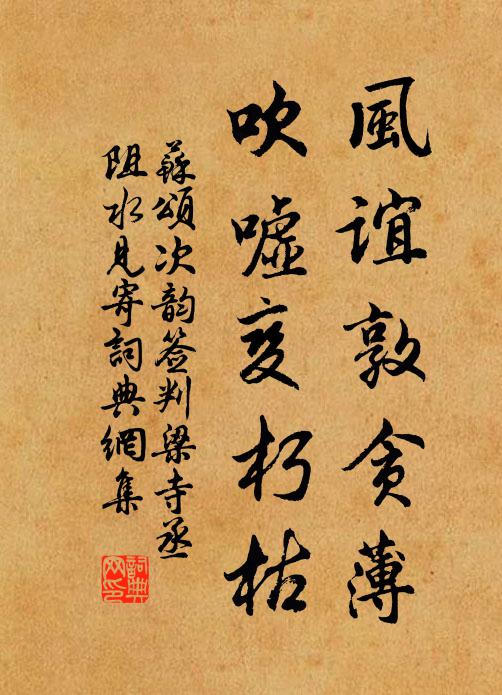 風誼敦貪薄
吹噓变朽枯
蘇頌次韵签判梁寺丞
阻水見寄詞典網集
詞典网印